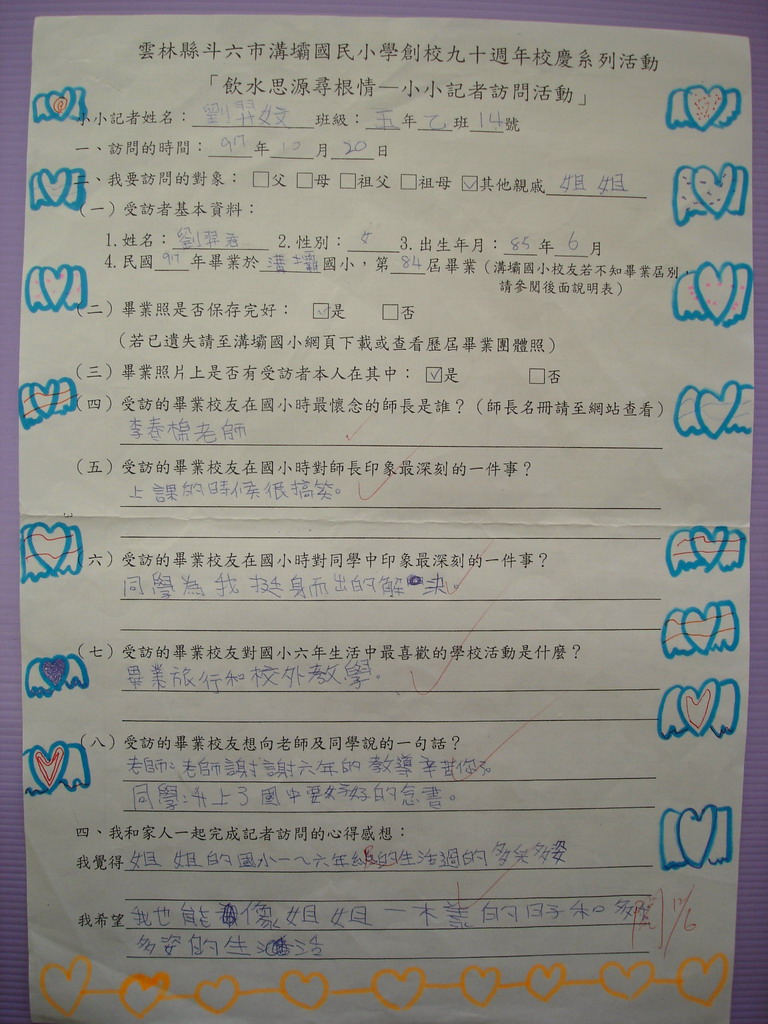 雲林縣斗六市溝壩國民小學創校九十週年校慶系列活動
「飲水思源尋根情—小小記者訪問活動」
小小記者姓名：劉羿妏 班級：五年乙班14號
一、訪問的時間：97年10月20日
二、我要訪問的對象：□父 □母 □祖父 □祖母 ☑其他親戚 姐姐
（一）受訪者基本資料：
1.姓名：劉羿君 2.性別：女 3.出生年月：85年6月
4.民國97年畢業於溝壩國小，第84屆畢業（溝壩國小校友若不知畢業屆別，
請參閱後面說明表）
（二）畢業照是否保存完好： ☑是 □否
（若已遺失請至溝壩國小網頁下載或查看歷屆畢業團體照）
（三）畢業照片上是否有受訪者本人在其中： ☑是 □否
（四）受訪的畢業校友在國小時最懷念的師長是誰？（師長名冊請至網站查看）
李春棉老師
（五）受訪的畢業校友在國小時對師長印象最深刻的一件事？
上課的時候很搞笑。
（六）受訪的畢業校友在國小時對同學中印象最深刻的一件事？
同學為我挺身而出的解決。
（七）受訪的畢業校友對國小六年生活中最喜歡的學校活動是什麼？
畢業旅行和校外教學。
（八）受訪的畢業校友想向老師及同學說的一句話？
老師：老師謝謝六年的教導辛苦你了。
同學：升上了國中要好好的念書。
四、我和家人一起完成記者訪問的心得感想：
我覺得 姐姐的國小一~六年級的生活過的多采多姿
我希望 我也能像姐姐一樣的日子和多采
多姿的生活
閱 10/6